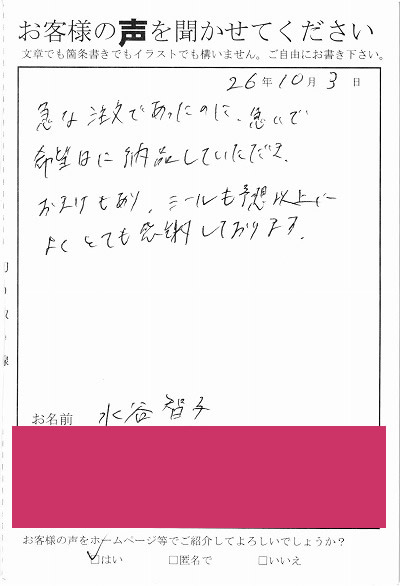 お客様の声を聞かせてください
文章でも箇条書きでもイラストでも構いません。ご自由にお書き下さい。
26年10月3日
急な注文であったのに、急いで
希望日に納品していただき、
おまけもあり、シールも予想以上に
よくとても感謝しております。
お名前 水谷智子
お客様の声をホームページ等でご紹介してよろしいでしょうか？
☑はい □匿名で □いいえ